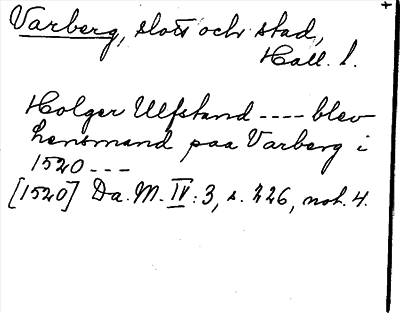 Varberg, slott och stad,
Hall. l.
Holger Ulfstand ---- blev
hensmand paa Varberg i
1520 ---
[1520] Da. M. IV: 3, s. 226, not. 4.